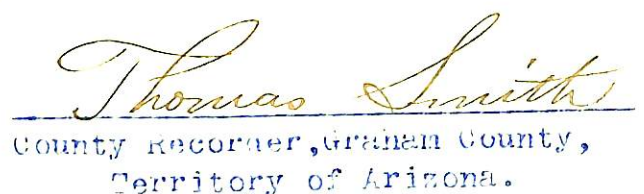 Thomas Smith
County Recorder, Graham County,
Territory of Arizona.